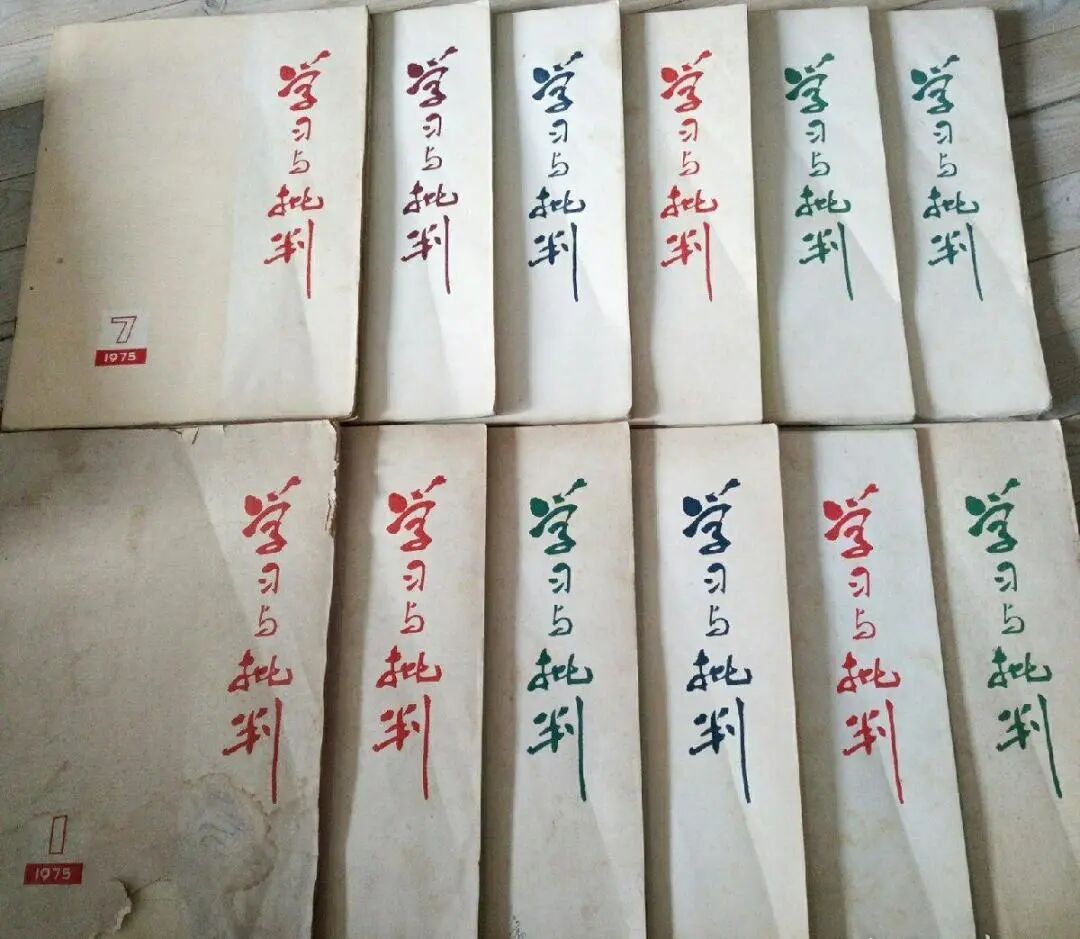 学习与批判
7
1975
学习与批判
学习与批判
学习与批判
学习与批判
学习与批判
学习与批判
1
1975
学习与批判
学习与批判
学习与批判
学习与批判
学习与批判